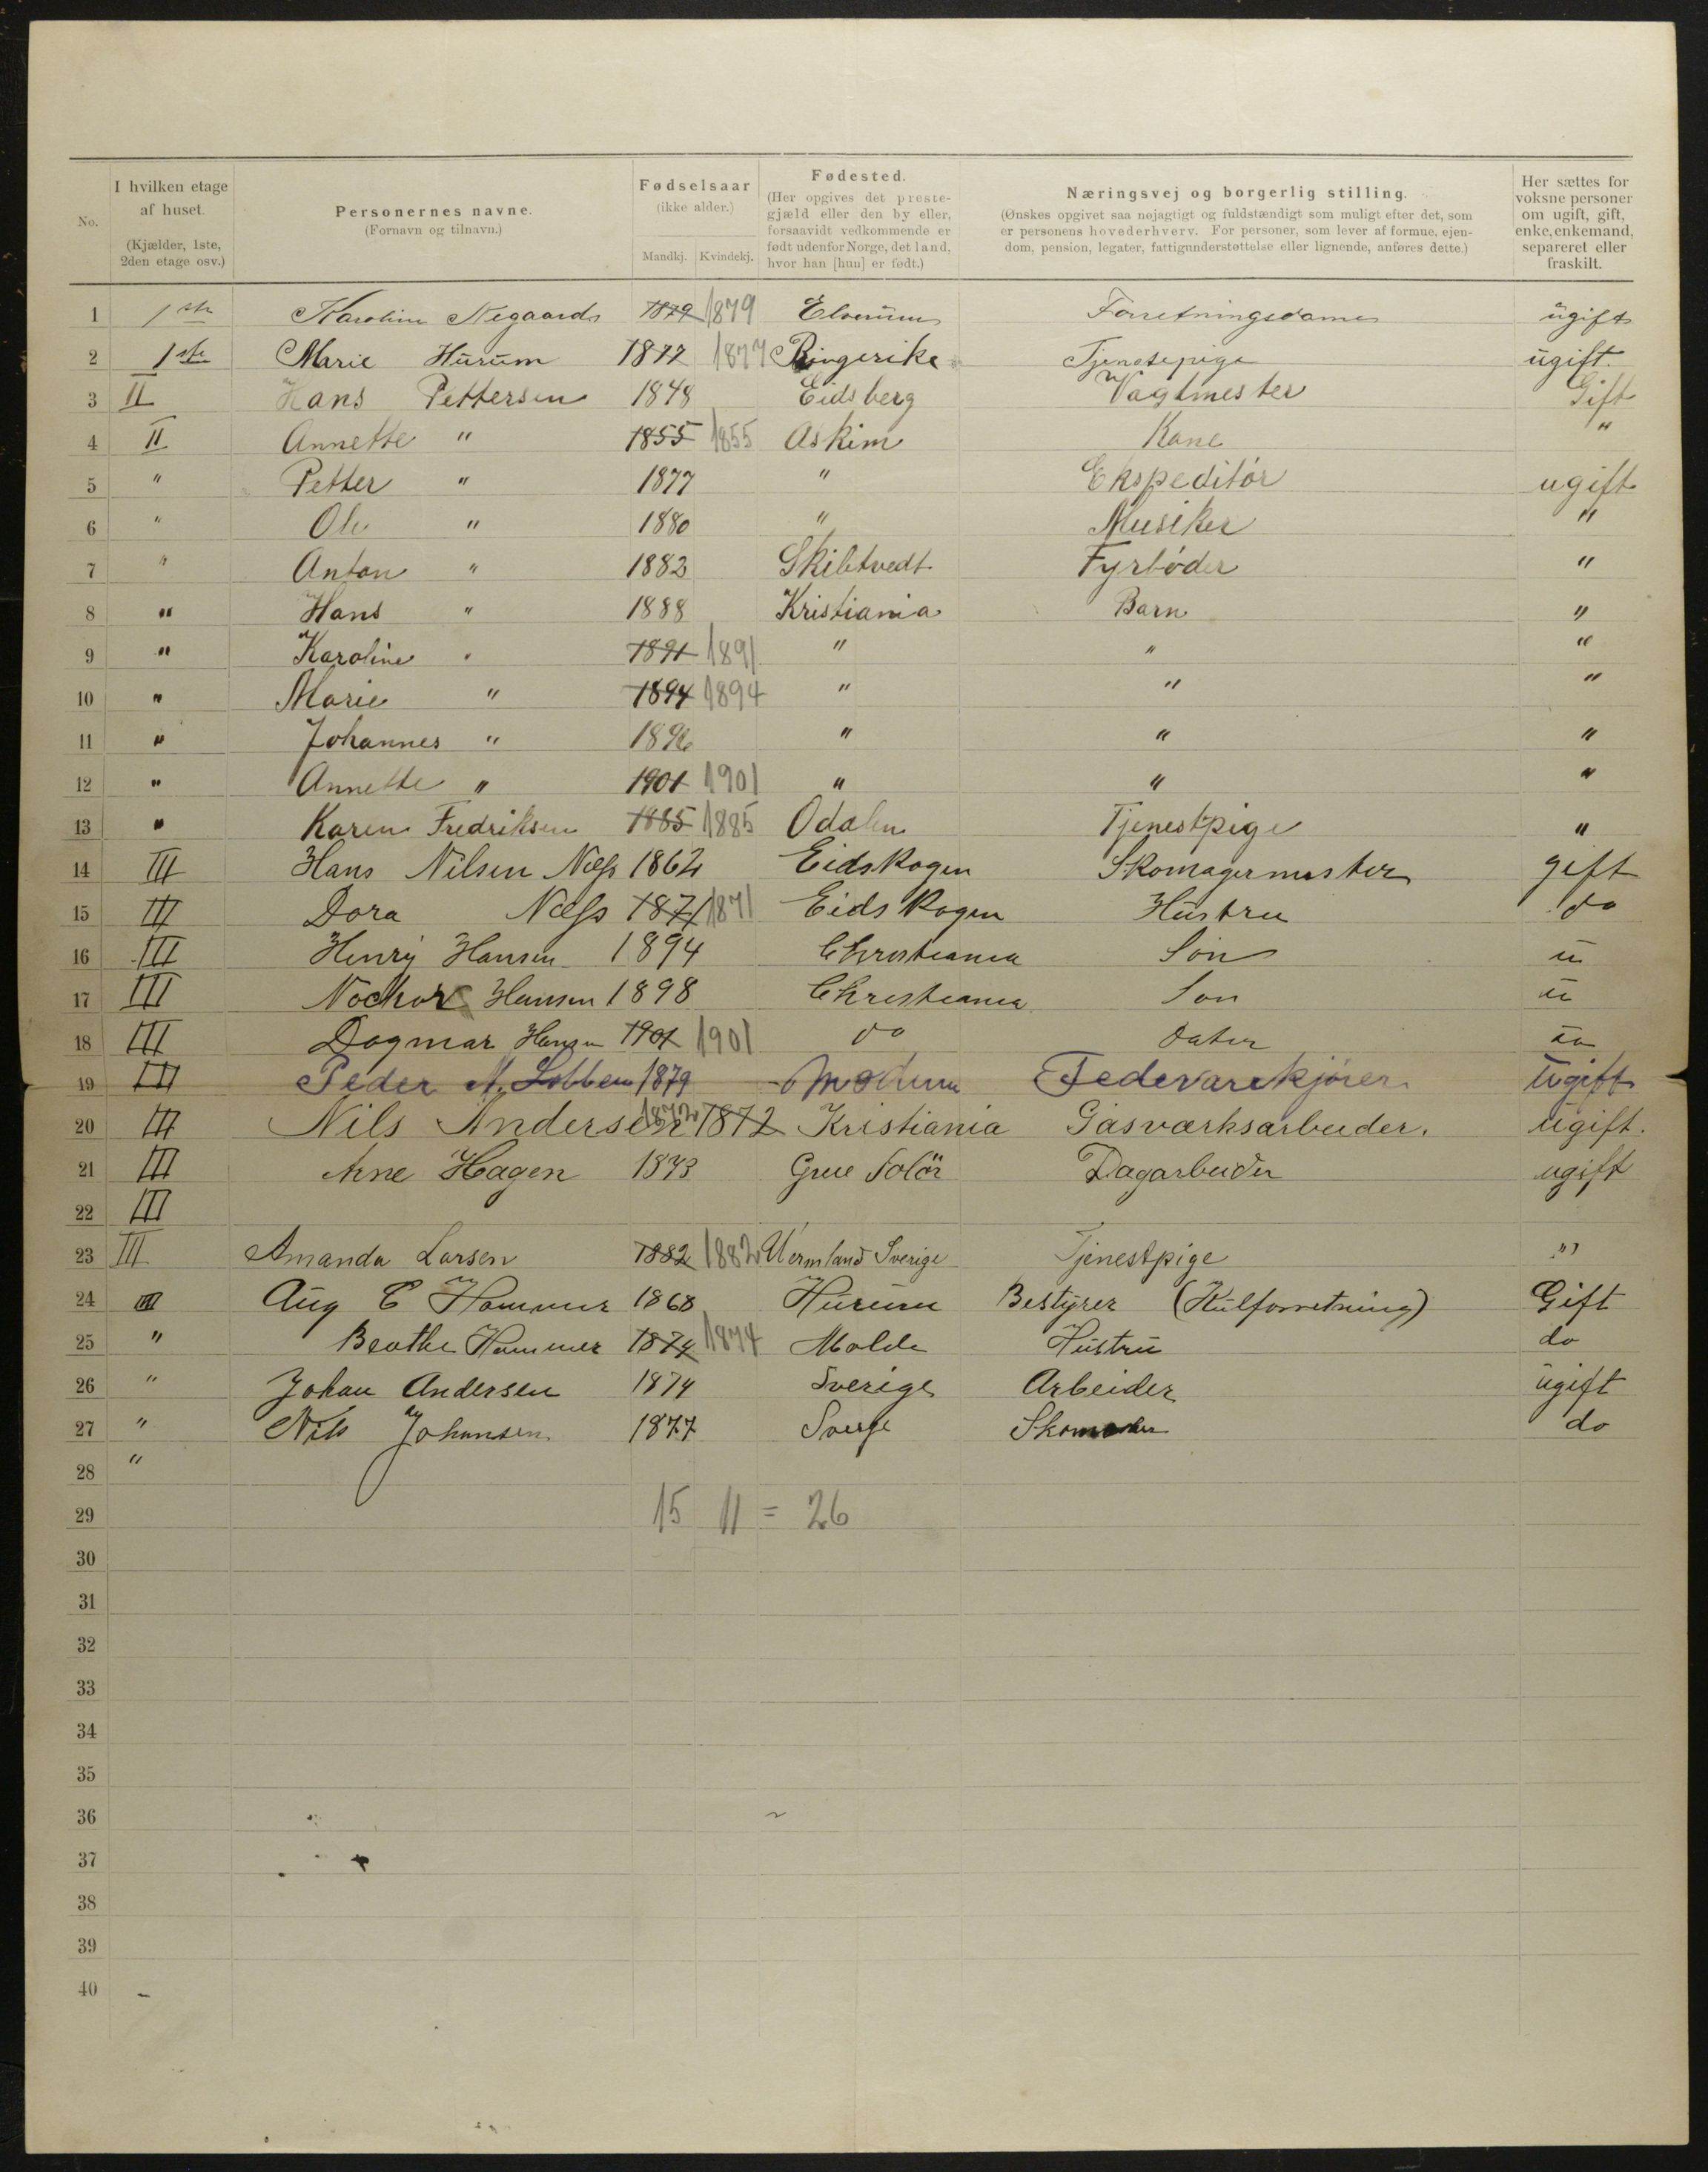 No.
I hvilken etage af huset.
(Kjælder, 1ste, 2den etage osv.)
Personernes navne.
(Fornavn og tilnavn.)
Fødselsaar
(ikke alder.)
Mandkj. Kvindekj.
Fødested.
(Her opgives det prestegjæld eller den by eller, forsaavidt vedkommende er født udenfor Norge, det land, hvor han [hun] er født.)
Næringsvej og borgerlig stilling.
(Ønskes opgivet saa nøjagtigt og fuldstændigt som muligt efter det, som er personens hovederhverv. For personer, som lever af formue, ejendom, pension, legater, fattigunderstøttelse eller lignende, anføres dette.)
Her sættes for voksne personer om ugift, gift, enke, enkemand, separeret eller fraskilt.
1 1ste Karoline Negaard 1879 1879 Elverum Forretningsdame ugift
2 1ste Marie Hurum 1877 1877 Ringerike Tjenestepige ugift.
3 II Hans Pettersen 1848 Eidsberg Vagtmester Gift
4 II Annette " 1855 1855 Askim Kone "
5 " Petter " 1877 " Ekspeditør ugift
6 " Ole " 1880 " Musiker "
7 " Anton " 1883 Skibtvedt Fyrbøder "
8 " Hans " 1888 Kristiania Barn "
9 " Karoline " 1891 1891 " " "
10 " Marie " 1894 1894 " " "
11 " Johannes " 1896 " " "
12 " Annette " 1901 1901 " " "
13 " Karen Fredriksen 1885 1885 Odalen Tjenestpige "
14 III Hans Nilsen Næss 1862 Eidskogen Skomagermester gift
15 III Dora Næss 1871 1871 Eidskogen Hustru do
16 III Henry Hansen 1894 Christiania Søn u
17 III Hansen 1898 Christiania Søn u
18 III Dagmar Hansen 1901 1901 do Dater
19 III Peder N. 1879 Modum Fedevarekjører ugift
20 III Nils Andersen 1872 1872 Kristiania Gasværksarbeider. ugift.
21 III Arne Hagen 1873 Grue Solör Dagarbeider ugift
22 III
23 III Amanda Larsen 1882 1882 Vermland Sverige Tjenestpige "
24 III Aug C Hammer 1868 Hurum Bestyrer (Kulforretning) Gift
25 " Beathe Hammer 1874 1874 Molde Hustru do
26 " Johan Andersen 1874 Sverige Arbeider ugift
27 " Nils Johansen 1877 Sverge do
28 "
29 15 11 = 26
30
31
32
33
34
35
36
37
38
39
40